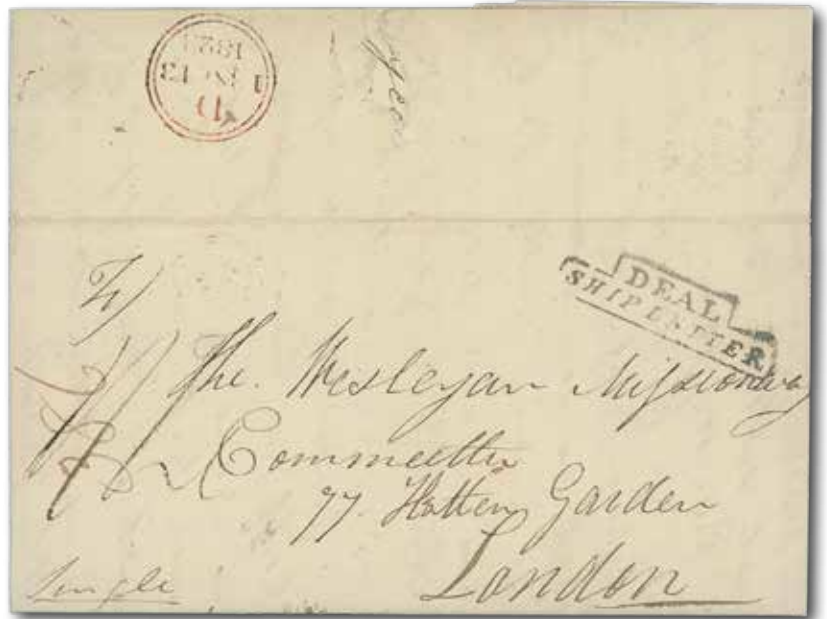 1821
DEAL
SHIP LETTER
The. Wesleyan Missionary
Committee
77. Hatten Garden
London
Single